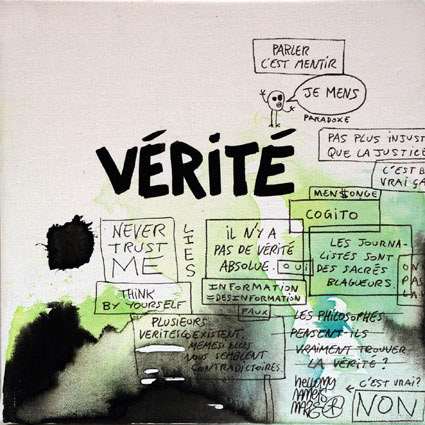 PARLER
C'EST MENTIR
JE MENS
PARADOXE
PAS PLUS INJUST
QUE LA JUSTICE
C'EST B
VRAI ÇA
VÉRITÉ
MEN$ONGE
COGITO
NEVER
TRUST
ME
LIES
iL N'Y A
PAS DE VÉRITÉ
ABSOLUE.
OUI
LES JOURNA-
LISTES SONT
DES SACRÉS
BLAGUEURS.
ON
PAS
LA
THINK
BY YOURSELF
INFORMATION
=DESINFORMATION
FAUX
PLUSIEURS
VERITES COEXISTENT
MEMES SI ELLES
NOUS SEMBLENT
CONTRADICTOIRES
LES PHILOSOPHES
PENSENT-ILS
VRAIMENT TROUVER
LA VÉRITÉ?
C'EST VRAI?
NON